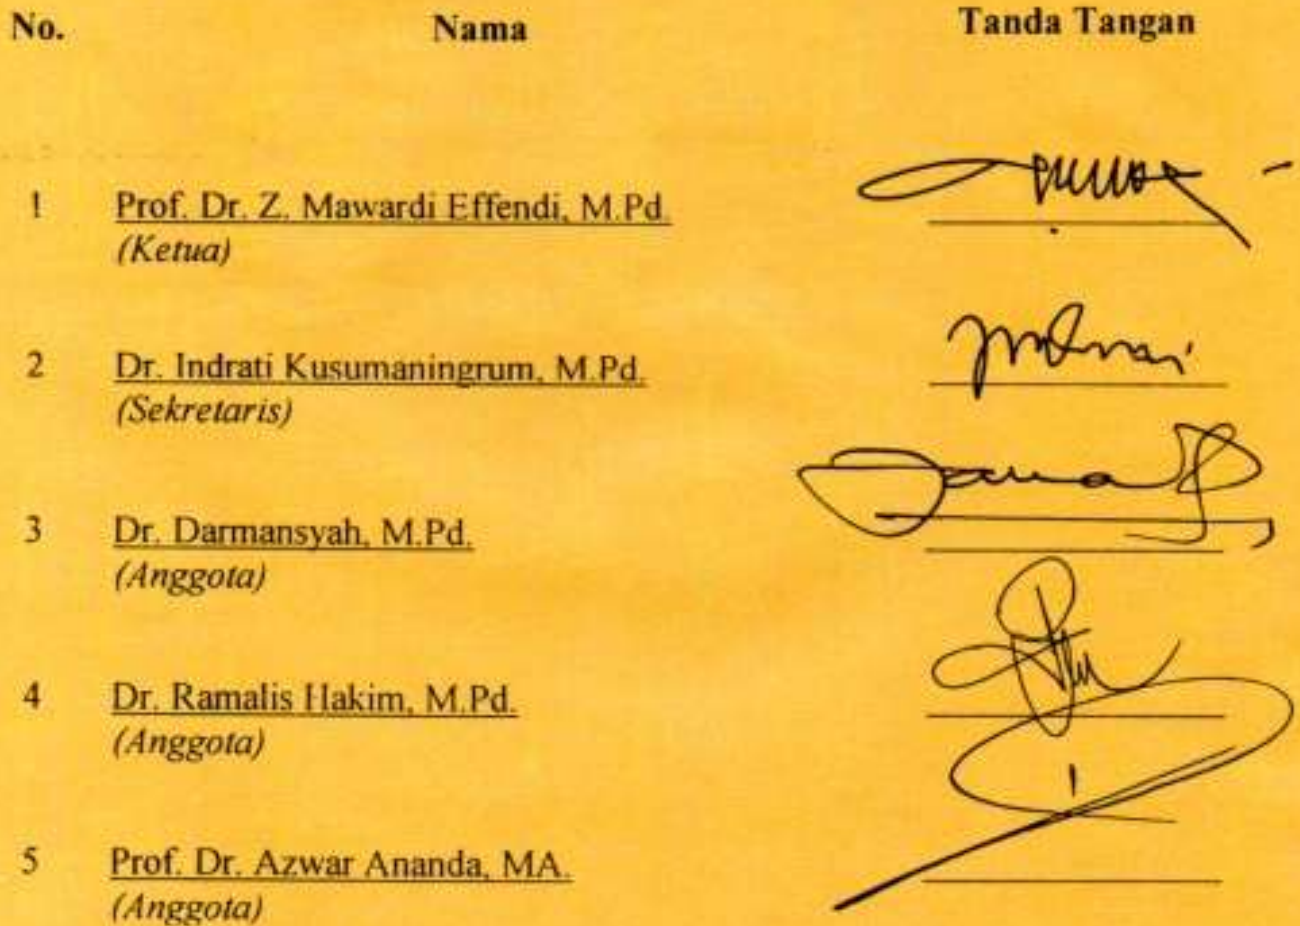 No. Nama Tanda Tangan
1 Prof. Dr. Z. Mawardi Effendi, M.Pd.
(Ketua)
2 Dr. Indrati Kusumaningrum, M.Pd.
(Sekretaris)
3 Dr. Darmansyah, M.Pd.
(Anggota)
4 Dr. Ramalis Hakim, M.Pd.
(Anggota)
5 Prof. Dr. Azwar Ananda, MA.
(Anggota)